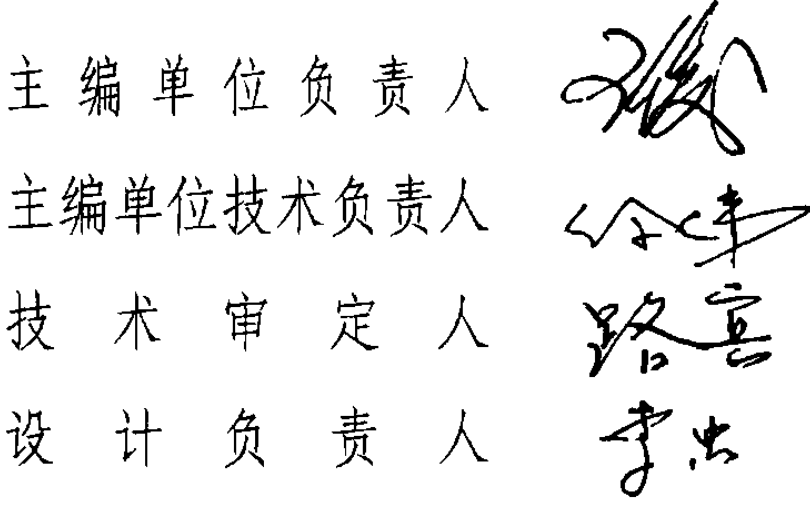 主编单位负责人
主编单位技术负责人
技术审定人 路宾
设计负责人 李忠